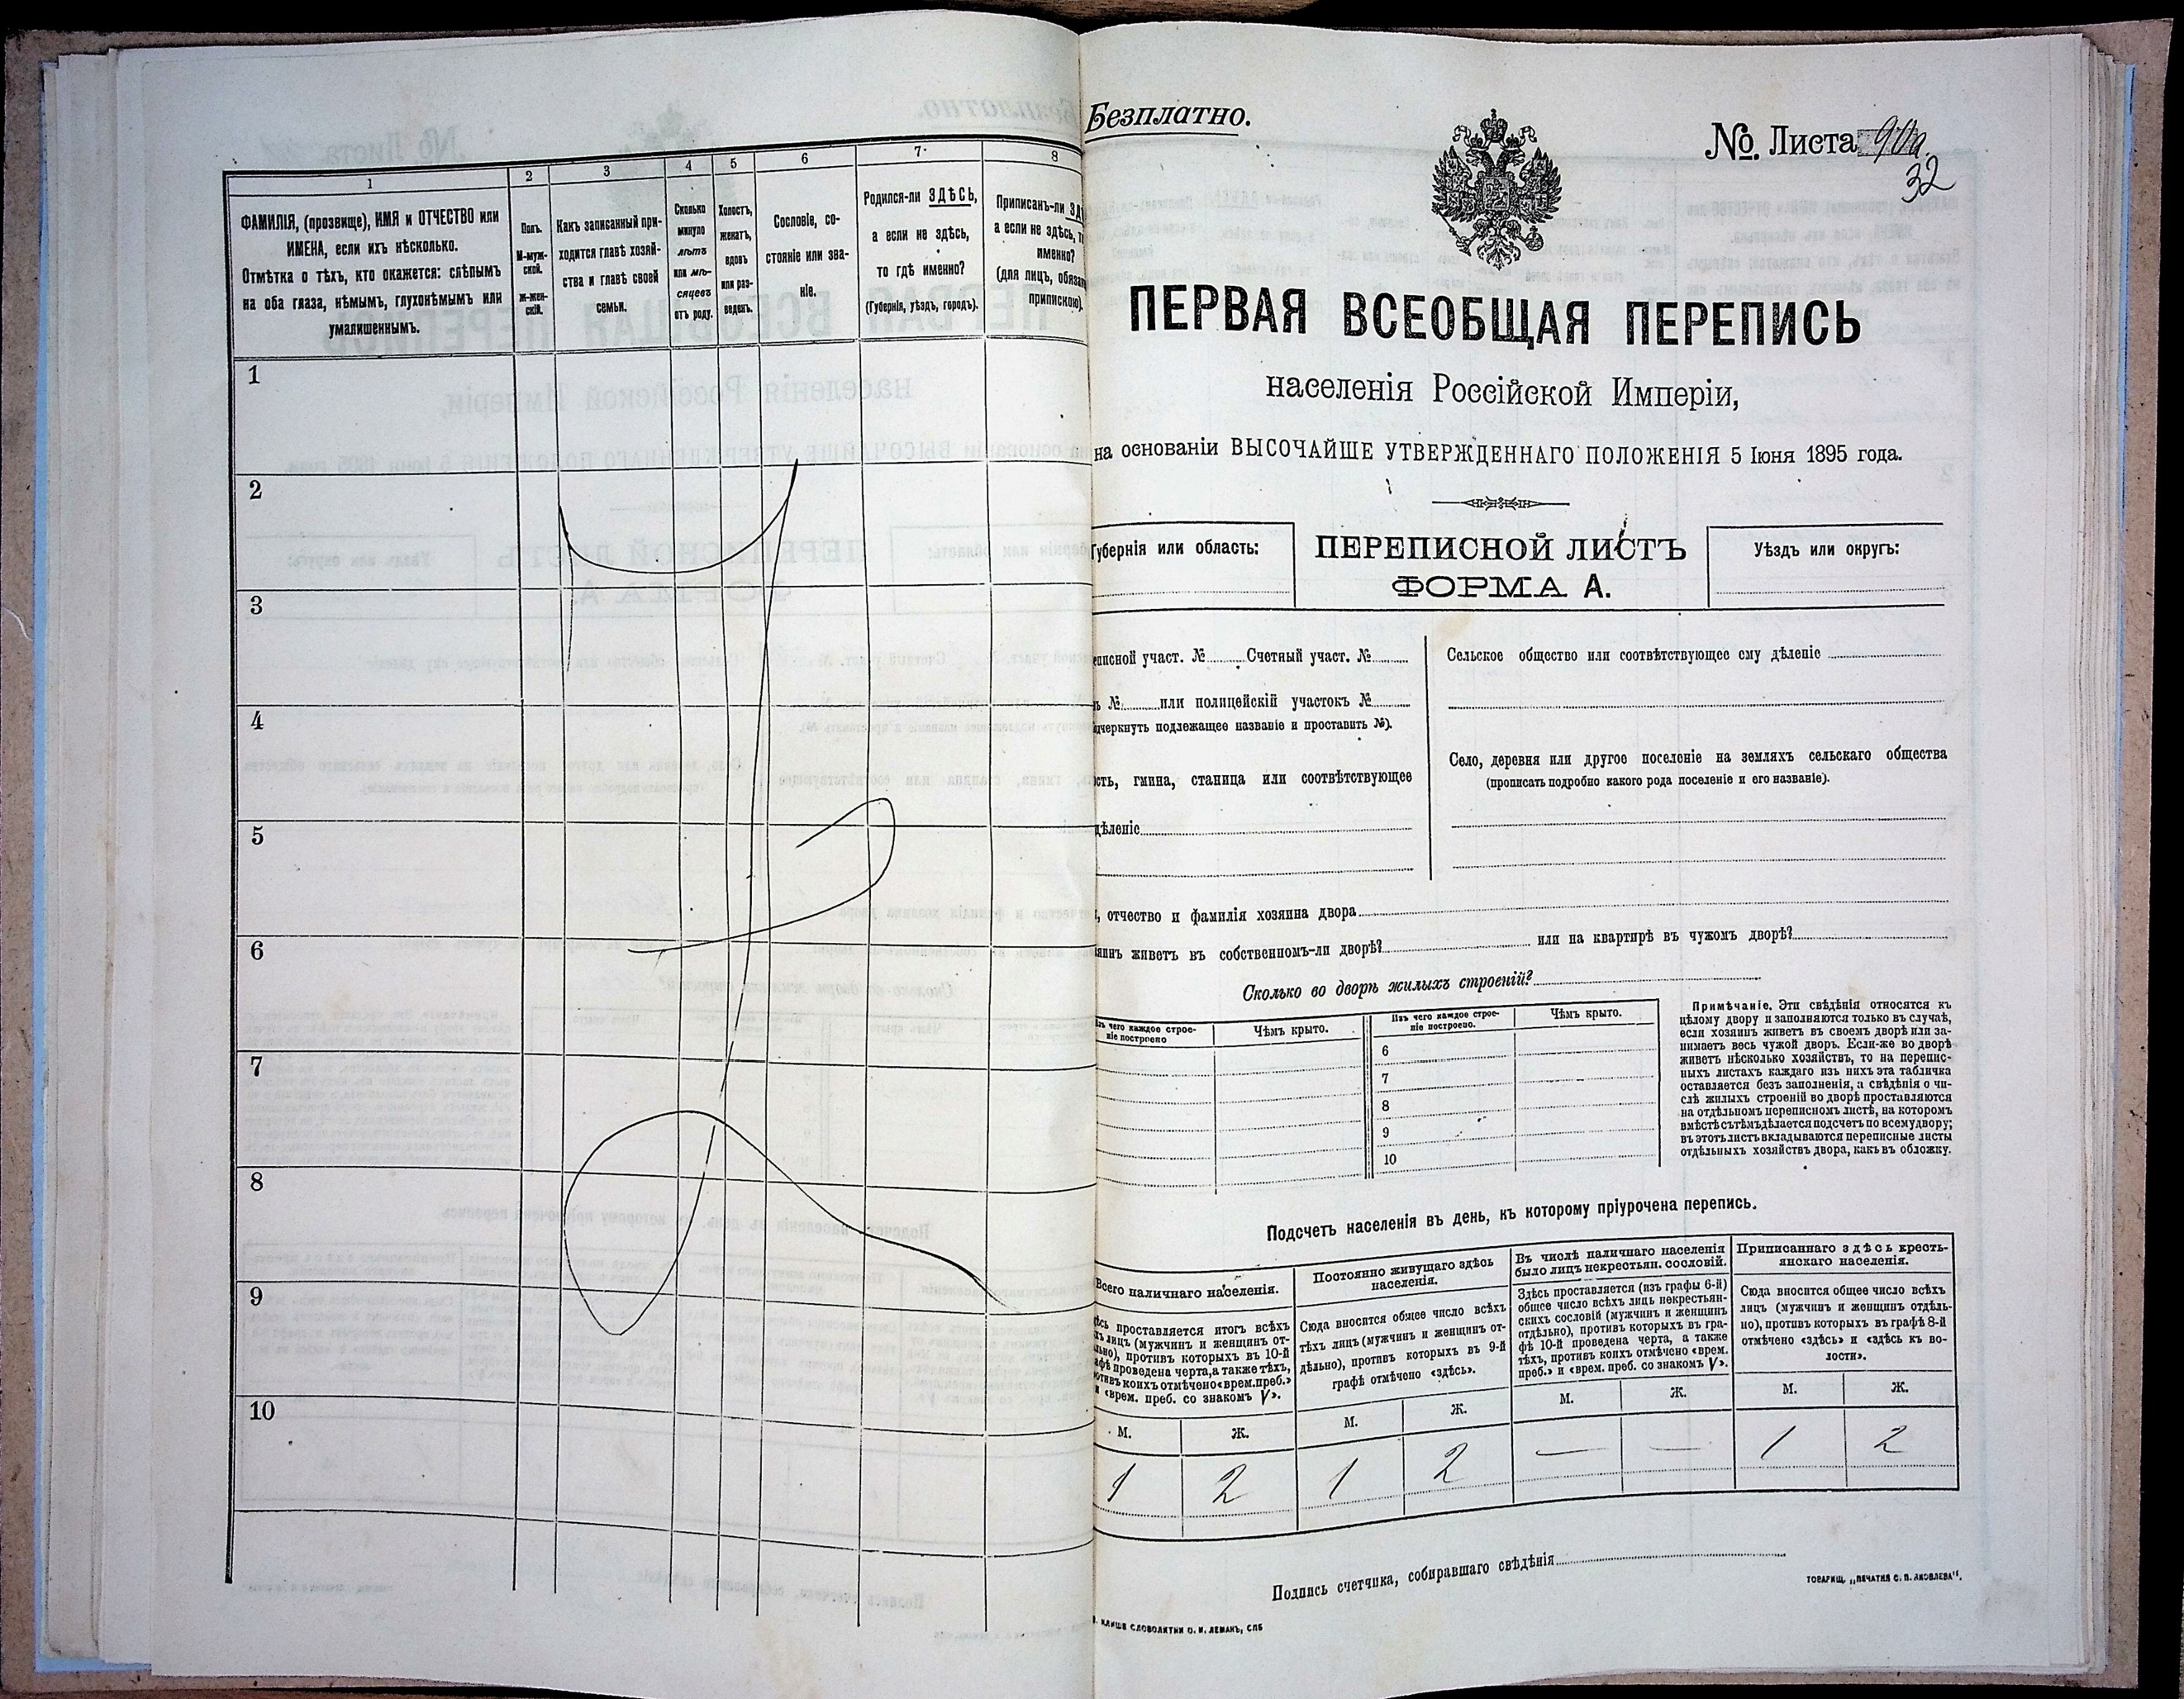 1
2
3
4
5
6
7.
8
ФАМИЛІЯ, (прозвище), ИМЯ и ОТЧЕСТВО или
ИМЕНА, если ихъ нѣсколько.
Отмѣтка о тѣхъ, кто окажется: слѣпымъ
на оба глаза, нѣмымъ, глухонѣмымъ или
умалишеннымъ.
Полъ.
М-муж-
ской.
ж-жен-
скій.
Какъ записанный при-
ходится главѣ хозяй-
ства и главѣ своей
семьи.
Сколько
минуло
лѣтъ
или мѣ-
сяцевъ
отъ роду.
Холостъ,
женатъ,
вдовъ
или раз-
веденъ.
Сословіе, со-
стояніе или зва-
ніе.
Родился-ли ЗДѢСЬ,
а если не здѣсь,
то гдѣ именно?
(Губернія, уѣздъ, городъ).
Приписанъ-ли
а если не здѣсь,
именно?
(для лицъ,
припискою).
1
2
3
4
5
6
7
8
9
10
Безплатно.
№ Листа
32
ПЕРВАЯ ВСЕОБЩАЯ ПЕРЕПИСЬ
населенія Россійской Имперіи,
на основаніи ВЫСОЧАЙШЕ УТВЕРЖДЕННАГО ПОЛОЖЕНІЯ 5 Іюня 1895 года.
Губернія или область:
ПЕРЕПИСНОЙ ЛИСТЪ
ФОРМА А.
Уѣздъ или округъ:
участ. № Счетный участ. №
№ или полицейскій участокъ №
подлежащее названіе и проставить №).
гмина, станица или соотвѣтствующее
Сельское общество или соотвѣтствующее ему дѣленіе
Село, деревня или другое поселеніе на земляхъ сельскаго общества
(прописать подробно какого рода поселеніе и его названіе).
отчество и фамилія хозяина двора
живетъ въ собственномъ-ли дворѣ? или на квартирѣ въ чужомъ дворѣ?
Сколько во дворѣ жилыхъ строеній?
чего каждое строе-
ніе построено
Чѣмъ крыто.
Изъ чего каждое строе-
ніе построено.
Чѣмъ крыто.
6
7
8
9
10
Примѣчаніе. Эти свѣдѣнія относятся къ
цѣлому двору и заполняются только въ случаѣ,
если хозяинъ живетъ въ своемъ дворѣ или за-
нимаетъ весь чужой дворъ. Если-же во дворѣ
живетъ нѣсколько хозяйствъ, то на перепис-
ныхъ листахъ каждаго изъ нихъ эта табличка
оставляется безъ заполненія, а свѣдѣнія о чи-
слѣ жилыхъ строеній во дворѣ проставляются
на отдѣльномъ переписномъ листѣ, на которомъ
вмѣстѣ съ тѣмъ дѣлается подсчетъ по всему двору;
въ этотъ листъ вкладываются переписные листы
отдѣльныхъ хозяйствъ двора, какъ въ обложку.
Подсчетъ населенія въ день, къ которому пріурочена перепись.
Всего наличнаго населенія.
проставляется итогъ всѣхъ
лицъ (мужчинъ и женщинъ от-
противъ которыхъ въ 10-й
проведена черта, а также тѣхъ,
коихъ отмѣчено «врем. преб.»
и «врем. преб. со знакомъ V».
М. Ж.
1 2
Постоянно живущаго здѣсь
населенія.
Сюда вносится общее число всѣхъ
тѣхъ лицъ (мужчинъ и женщинъ от-
дѣльно), противъ которыхъ въ 9-й
графѣ отмѣчено «здѣсь».
М. Ж.
1 2
Въ числѣ наличнаго населенія
было лицъ некрестьян. сословій.
Здѣсь проставляется (изъ графы 6-й)
общее число всѣхъ лицъ некрестьян-
скихъ сословій (мужчинъ и женщинъ
отдѣльно), противъ которыхъ въ гра-
фѣ 10-й проведена черта, а также
тѣхъ, противъ коихъ отмѣчено «врем.
преб.» и «врем. преб. со знакомъ V».
М. Ж.
— —
Приписаннаго здѣсь кресть-
янскаго населенія.
Сюда вносится общее число всѣхъ
лицъ (мужчинъ и женщинъ отдѣль-
но), противъ которыхъ въ графѣ 8-й
отмѣчено «здѣсь» и «здѣсь къ во-
лости».
М. Ж.
1 2
Подпись счетчика, собиравшаго свѣдѣнія
ТОВАРИЩ. „ПЕЧАТНЯ С. П. ЯКОВЛЕВА".
КЛИШЕ СЛОВОЛИТНИ О. И. ЛЕМАНЪ, СПБ